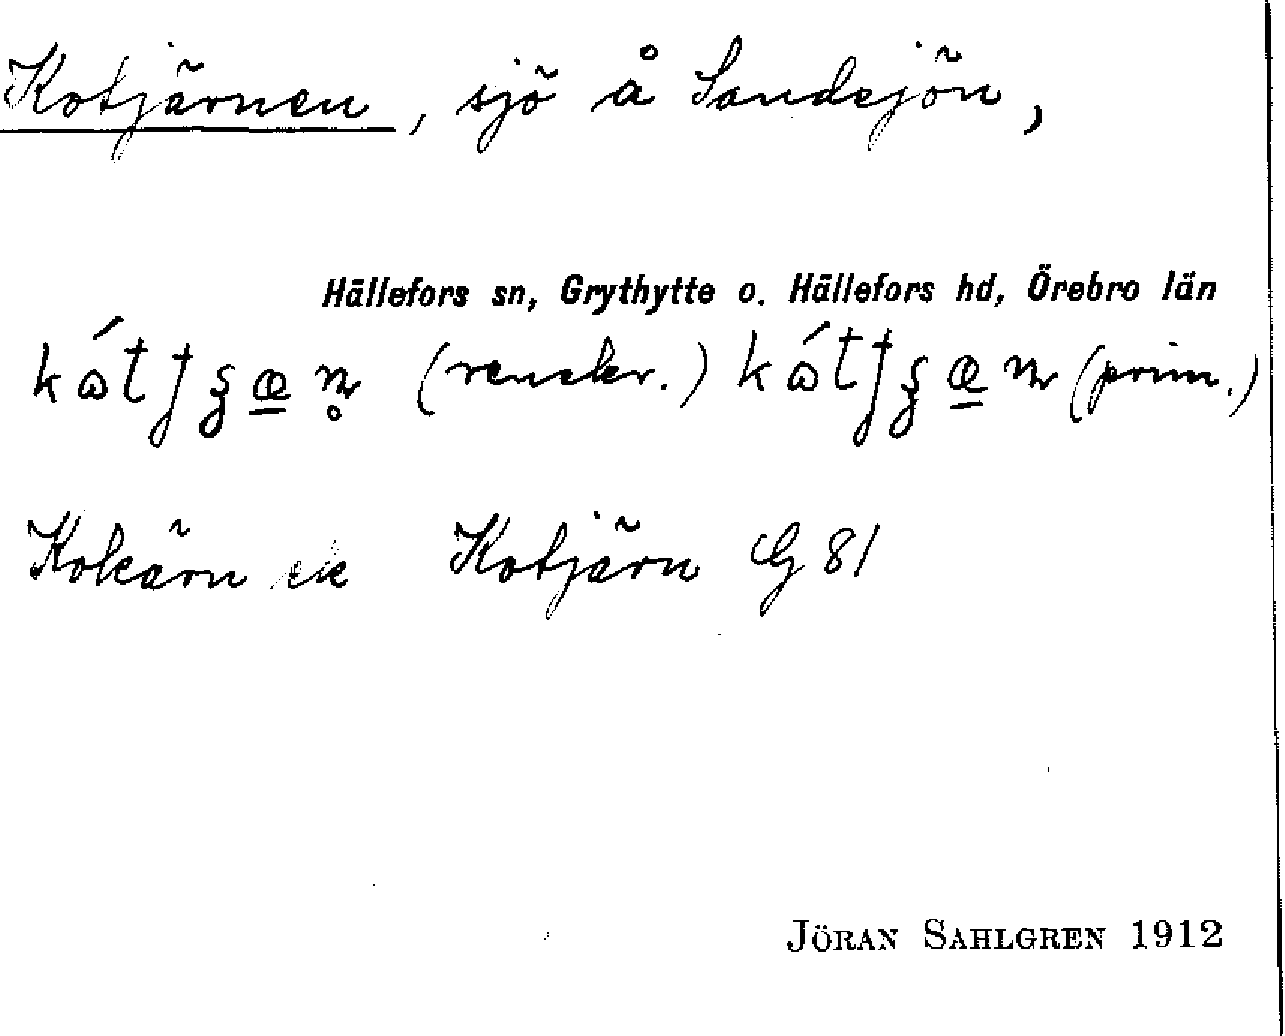 Kotjärnen, sjö å Sandsjön,
Hällefors sn, Grythytte o. Hällefors hd, Örebro län
(renskr.) (prim.)
Kokärn ek Kotjärn G 81
JÖRAN SAHLGREN 1912